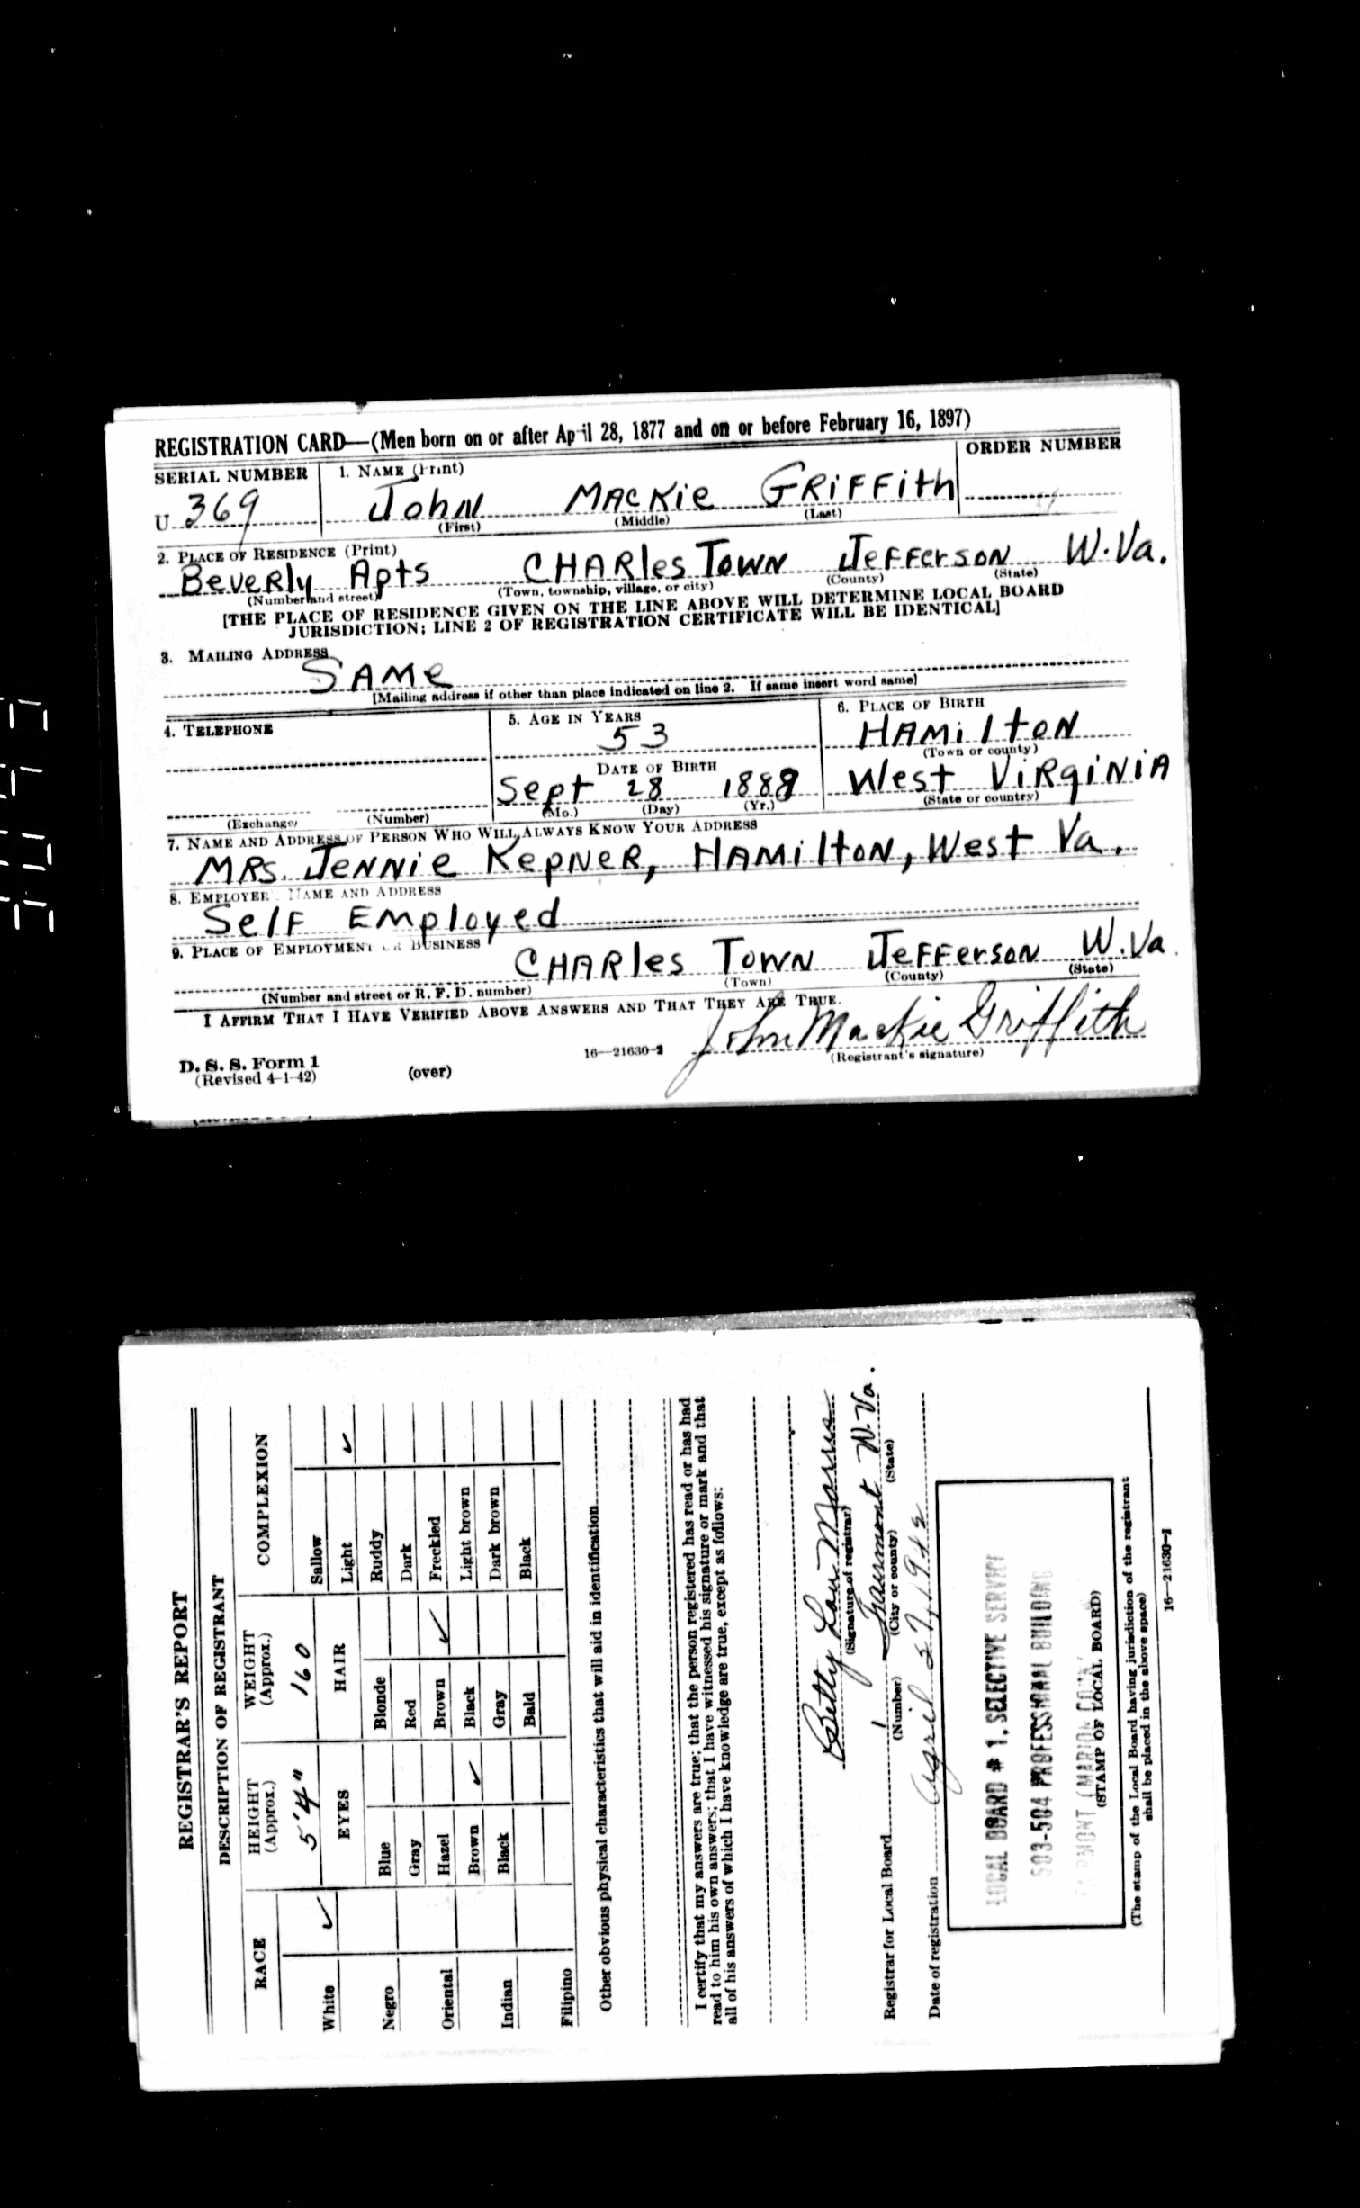 REGISTRATION CARD—(Men born on or after April 28, 1877 and on or before February 16, 1897)
SERIAL NUMBER 1. NAME (Print) ORDER NUMBER
U 369 John MACKie GRiFFith
(First) (Middle) (Last)
2. PLACE OF RESIDENCE (Print)
Beverly Apts CHARles Town Jefferson W.Va.
(Number and street) (Town, township, village, or city) (County) (State)
[THE PLACE OF RESIDENCE GIVEN ON THE LINE ABOVE WILL DETERMINE LOCAL BOARD
JURISDICTION; LINE 2 OF REGISTRATION CERTIFICATE WILL BE IDENTICAL]
3. MAILING ADDRESS
SAMe
[Mailing address if other than place indicated on line 2. If same insert word same]
4. TELEPHONE 5. AGE IN YEARS 6. PLACE OF BIRTH
53 HAMiltoN
(Town or county)
DATE OF BIRTH
Sept 28 1888 West VIRgiNiA
(Exchange) (Number) (Mo.) (Day) (Yr.) (State or country)
7. NAME AND ADDRESS OF PERSON WHO WILL ALWAYS KNOW YOUR ADDRESS
MRS. JeNNie KepNeR, HAMiltoN, West Va.
8. EMPLOYER'S NAME AND ADDRESS
Self Employed
9. PLACE OF EMPLOYMENT OR BUSINESS
CHARles Town Jefferson W.Va.
(Number and street or R. F. D. number) (Town) (County) (State)
I AFFIRM THAT I HAVE VERIFIED ABOVE ANSWERS AND THAT THEY ARE TRUE.
John Mackie Griffith
D. S. S. Form 1 16—21630-2 (Registrant's signature)
(Revised 4-1-42) (over)
REGISTRAR'S REPORT
DESCRIPTION OF REGISTRANT
RACE HEIGHT (Approx.) WEIGHT (Approx.) COMPLEXION
5'4" 160
White ✓ EYES HAIR Sallow
Light ✓
Negro Blue Blonde Ruddy
Gray Red Dark
Oriental Hazel Brown ✓ Freckled
Brown ✓ Black Light brown
Indian Black Gray Dark brown
Bald Black
Filipino
Other obvious physical characteristics that will aid in identification
I certify that my answers are true; that the person registered has read or has had
read to him his own answers; that I have witnessed his signature or mark and that
all of his answers of which I have knowledge are true, except as follows:
Betty Lou Morris
(Signature of registrar)
Registrar for Local Board 1 Fairmont W.Va.
(Number) (City or county) (State)
Date of registration April 27, 1942
LOCAL BOARD # 1, SELECTIVE SERVICE
503-504 PROFESSIONAL BUILDING
(STAMP OF LOCAL BOARD)
(The stamp of the Local Board having jurisdiction of the registrant
shall be placed in the above space)
16—21630-2